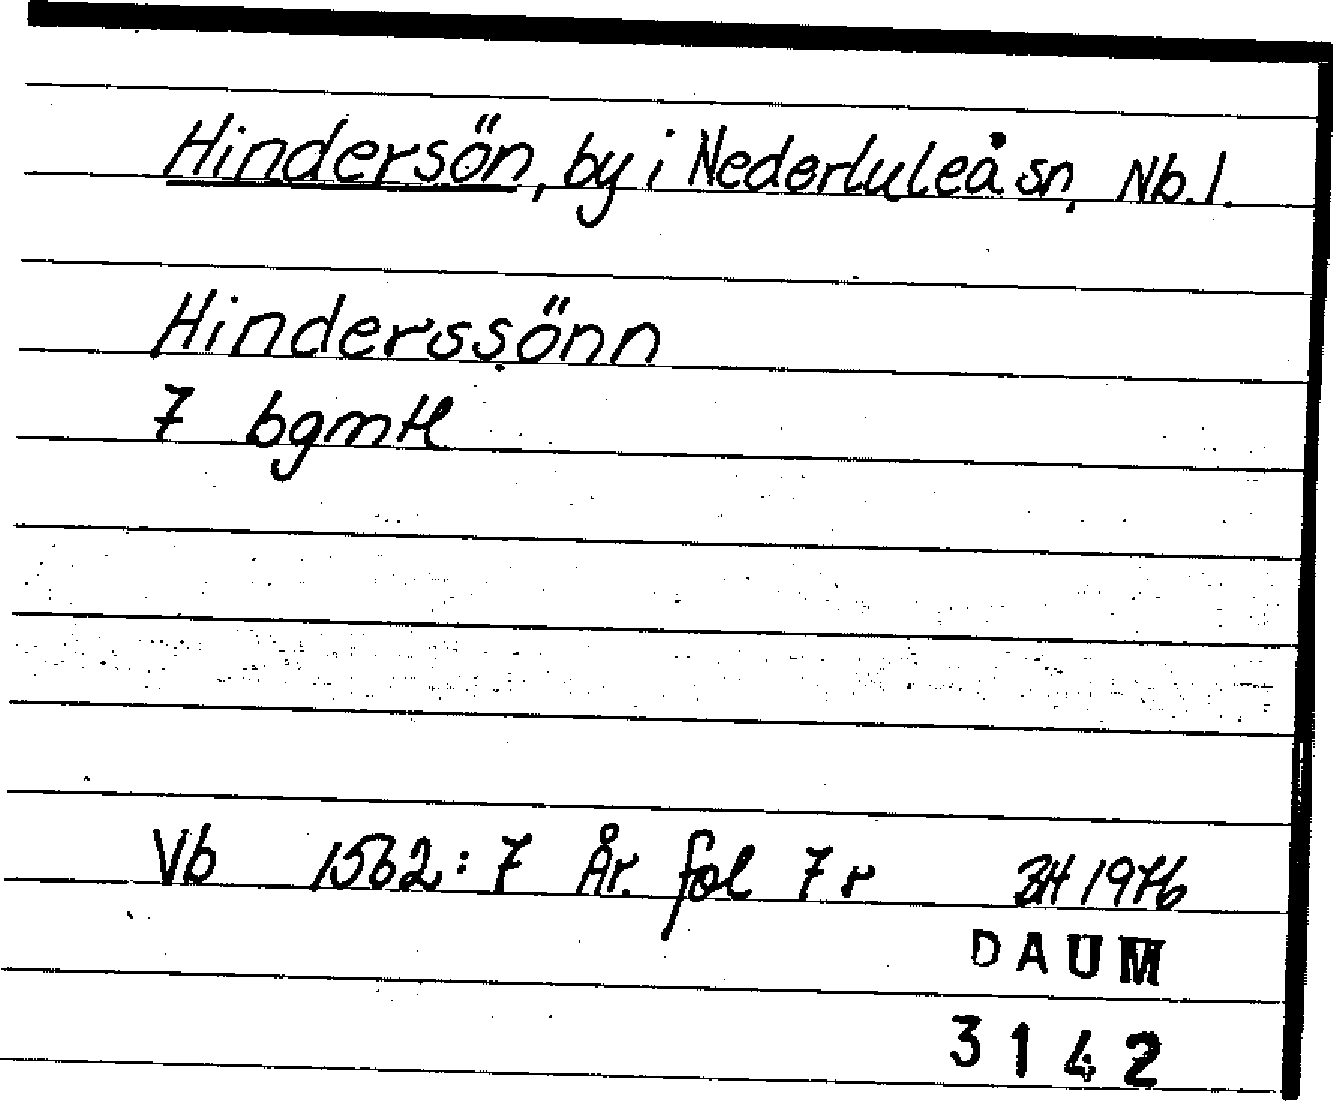 Hindersön, by i Nederluleå sn, Nb. l.
Hinderssönn
7 bgmtl
Vb 1562: 7 År. fol 7 r BH 1976
DAUM
3142